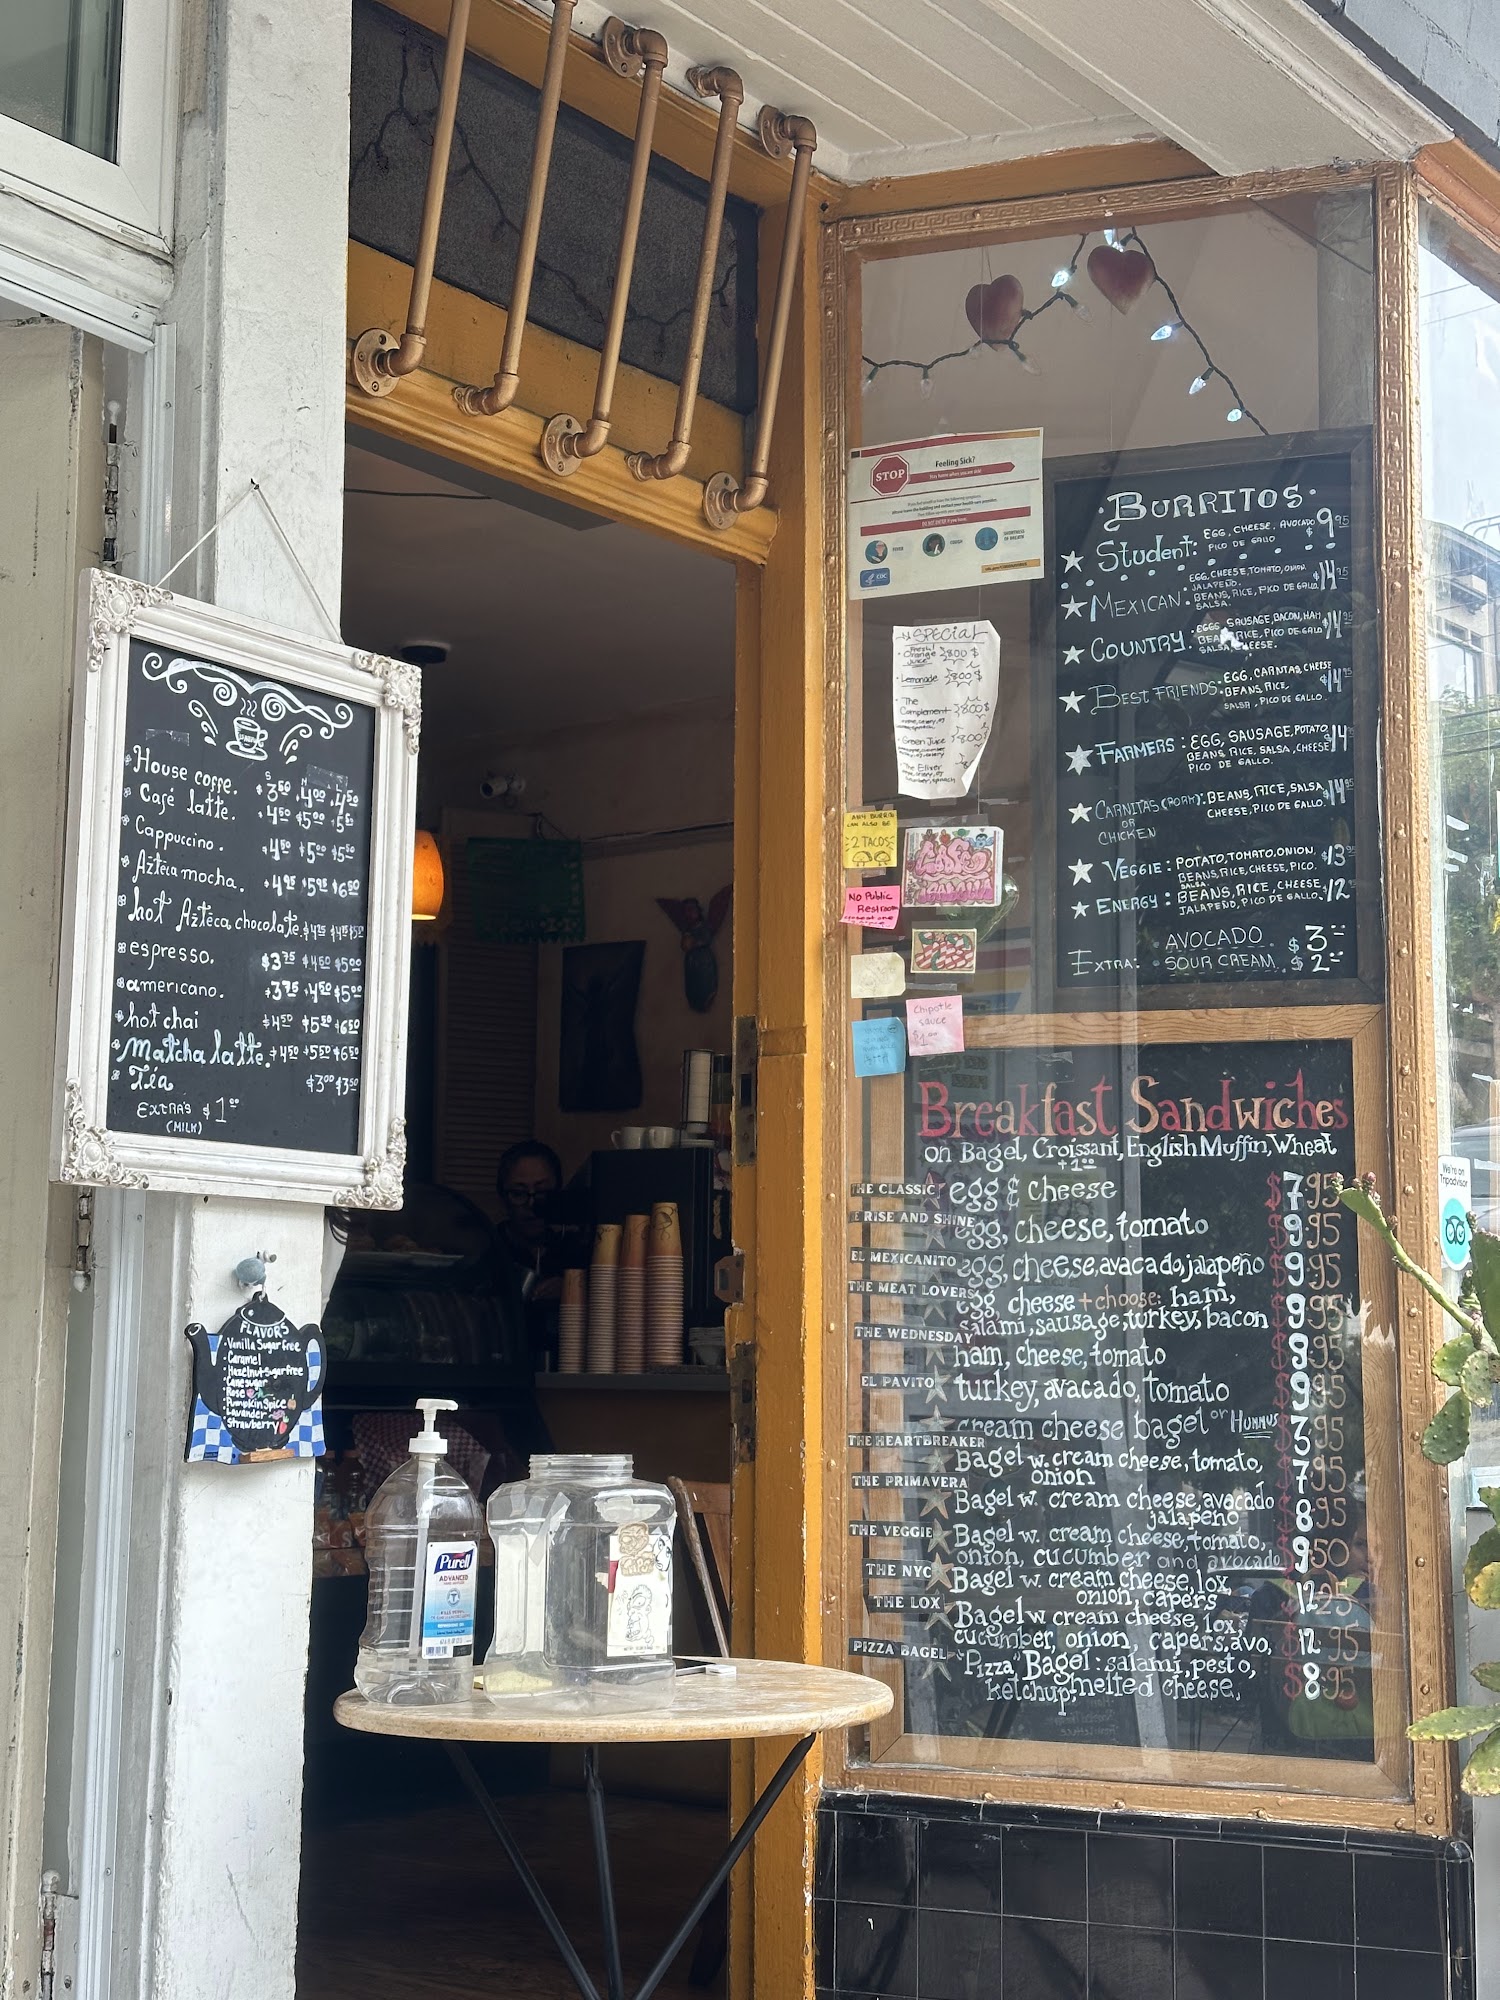 House coffe. $3⁵⁰ $4⁰⁰ $4⁵⁰
Café latte. $4⁵⁰ $5⁰⁰ $5⁵⁰
Cappuccino. $4⁵⁰ $5⁰⁰ $5⁵⁰
Azteca mocha. $4⁹⁵ $5⁹⁵ $6⁵⁰
hot Azteca chocolate.
espresso. $3⁷⁵ $4⁵⁰ $5⁰⁰
americano. $3⁷⁵ $4⁵⁰ $5⁰⁰
hot chai $4⁵⁰ $5⁵⁰ $6⁵⁰
Matcha latte. $4⁵⁰ $5⁵⁰ $6⁵⁰
Téa $3⁰⁰ $3⁵⁰
EXTRA'S $1⁰⁰
(MILK)
FLAVORS
Vanilla Sugar free
Caramel
Hazelnut sugar free
Cane sugar
Rose
Pumpkin Spice
Lavander
Strawberry
Purell
ADVANCED
STOP
Feeling Sick?
Stay home when you are sick!
DO NOT ENTER if you have:
FEVER
COUGH
SHORTNESS
OF BREATH
CDC
SPECIAL
Fresh!
Orange 800 $
Juice
Lemonade 800 $
The
Complement 800 $
Green Juice 800 $
The Elixer
ANY BURRITO
CAN ALSO BE
2 TACOS
No Public
Restroom
Chipotle
sauce
$1.00
BURRITOS
Student: EGG, CHEESE, AVOCADO $9⁹⁵
PICO DE GALLO
MEXICAN: EGG, CHEESE, TOMATO, ONION $14⁹⁵
JALAPEÑO.
BEANS, RICE, PICO DE GALLO
SALSA.
COUNTRY. EGGS, SAUSAGE, BACON, HAM $14⁹⁵
BEANS, RICE, PICO DE GALLO
SALSA, CHEESE.
BEST FRIENDS: EGG, CARNITAS, CHEESE $14⁹⁵
BEANS, RICE,
SALSA, PICO DE GALLO.
FARMERS: EGG, SAUSAGE, POTATO $14⁹⁵
BEANS, RICE, SALSA, CHEESE
PICO DE GALLO.
CARNITAS (PORK): BEANS, RICE, SALSA $14⁹⁵
OR CHEESE, PICO DE GALLO.
CHICKEN
VEGGIE: POTATO, TOMATO, ONION, $13⁹⁵
BEANS, RICE, CHEESE, PICO.
SALSA.
ENERGY: BEANS, RICE, CHEESE $12⁹⁵
JALAPEÑO, PICO DE GALLO.
EXTRA: AVOCADO $3
SOUR CREAM $2
Breakfast Sandwiches
on Bagel, Croissant, English Muffin, Wheat
+1⁰⁰
THE CLASSIC egg & cheese $7.95
RISE AND SHINE egg, cheese, tomato $9.95
EL MEXICANITO egg, cheese, avacado, jalapeño $9.95
THE MEAT LOVERS egg, cheese + choose: ham, $9.95
salami, sausage, turkey, bacon
THE WEDNESDAY ham, cheese, tomato $9.95
EL PAVITO turkey, avacado, tomato $9.95
cream cheese bagel or HUMMUS 3.95
THE HEARTBREAKER Bagel w. cream cheese, tomato, 7.95
onion
THE PRIMAVERA Bagel w. cream cheese, avocado 8.95
jalapeño
THE VEGGIE Bagel w. cream cheese, tomato, 9.50
onion, cucumber and avocado
THE NYC Bagel w. cream cheese, lox, 12.25
onion, capers
THE LOX Bagel w cream cheese, lox, 12.95
cucumber, onion, capers, avo,
PIZZA BAGEL "Pizza" Bagel: salami, pesto, $8.95
ketchup, melted cheese,
We're on
Tripadvisor